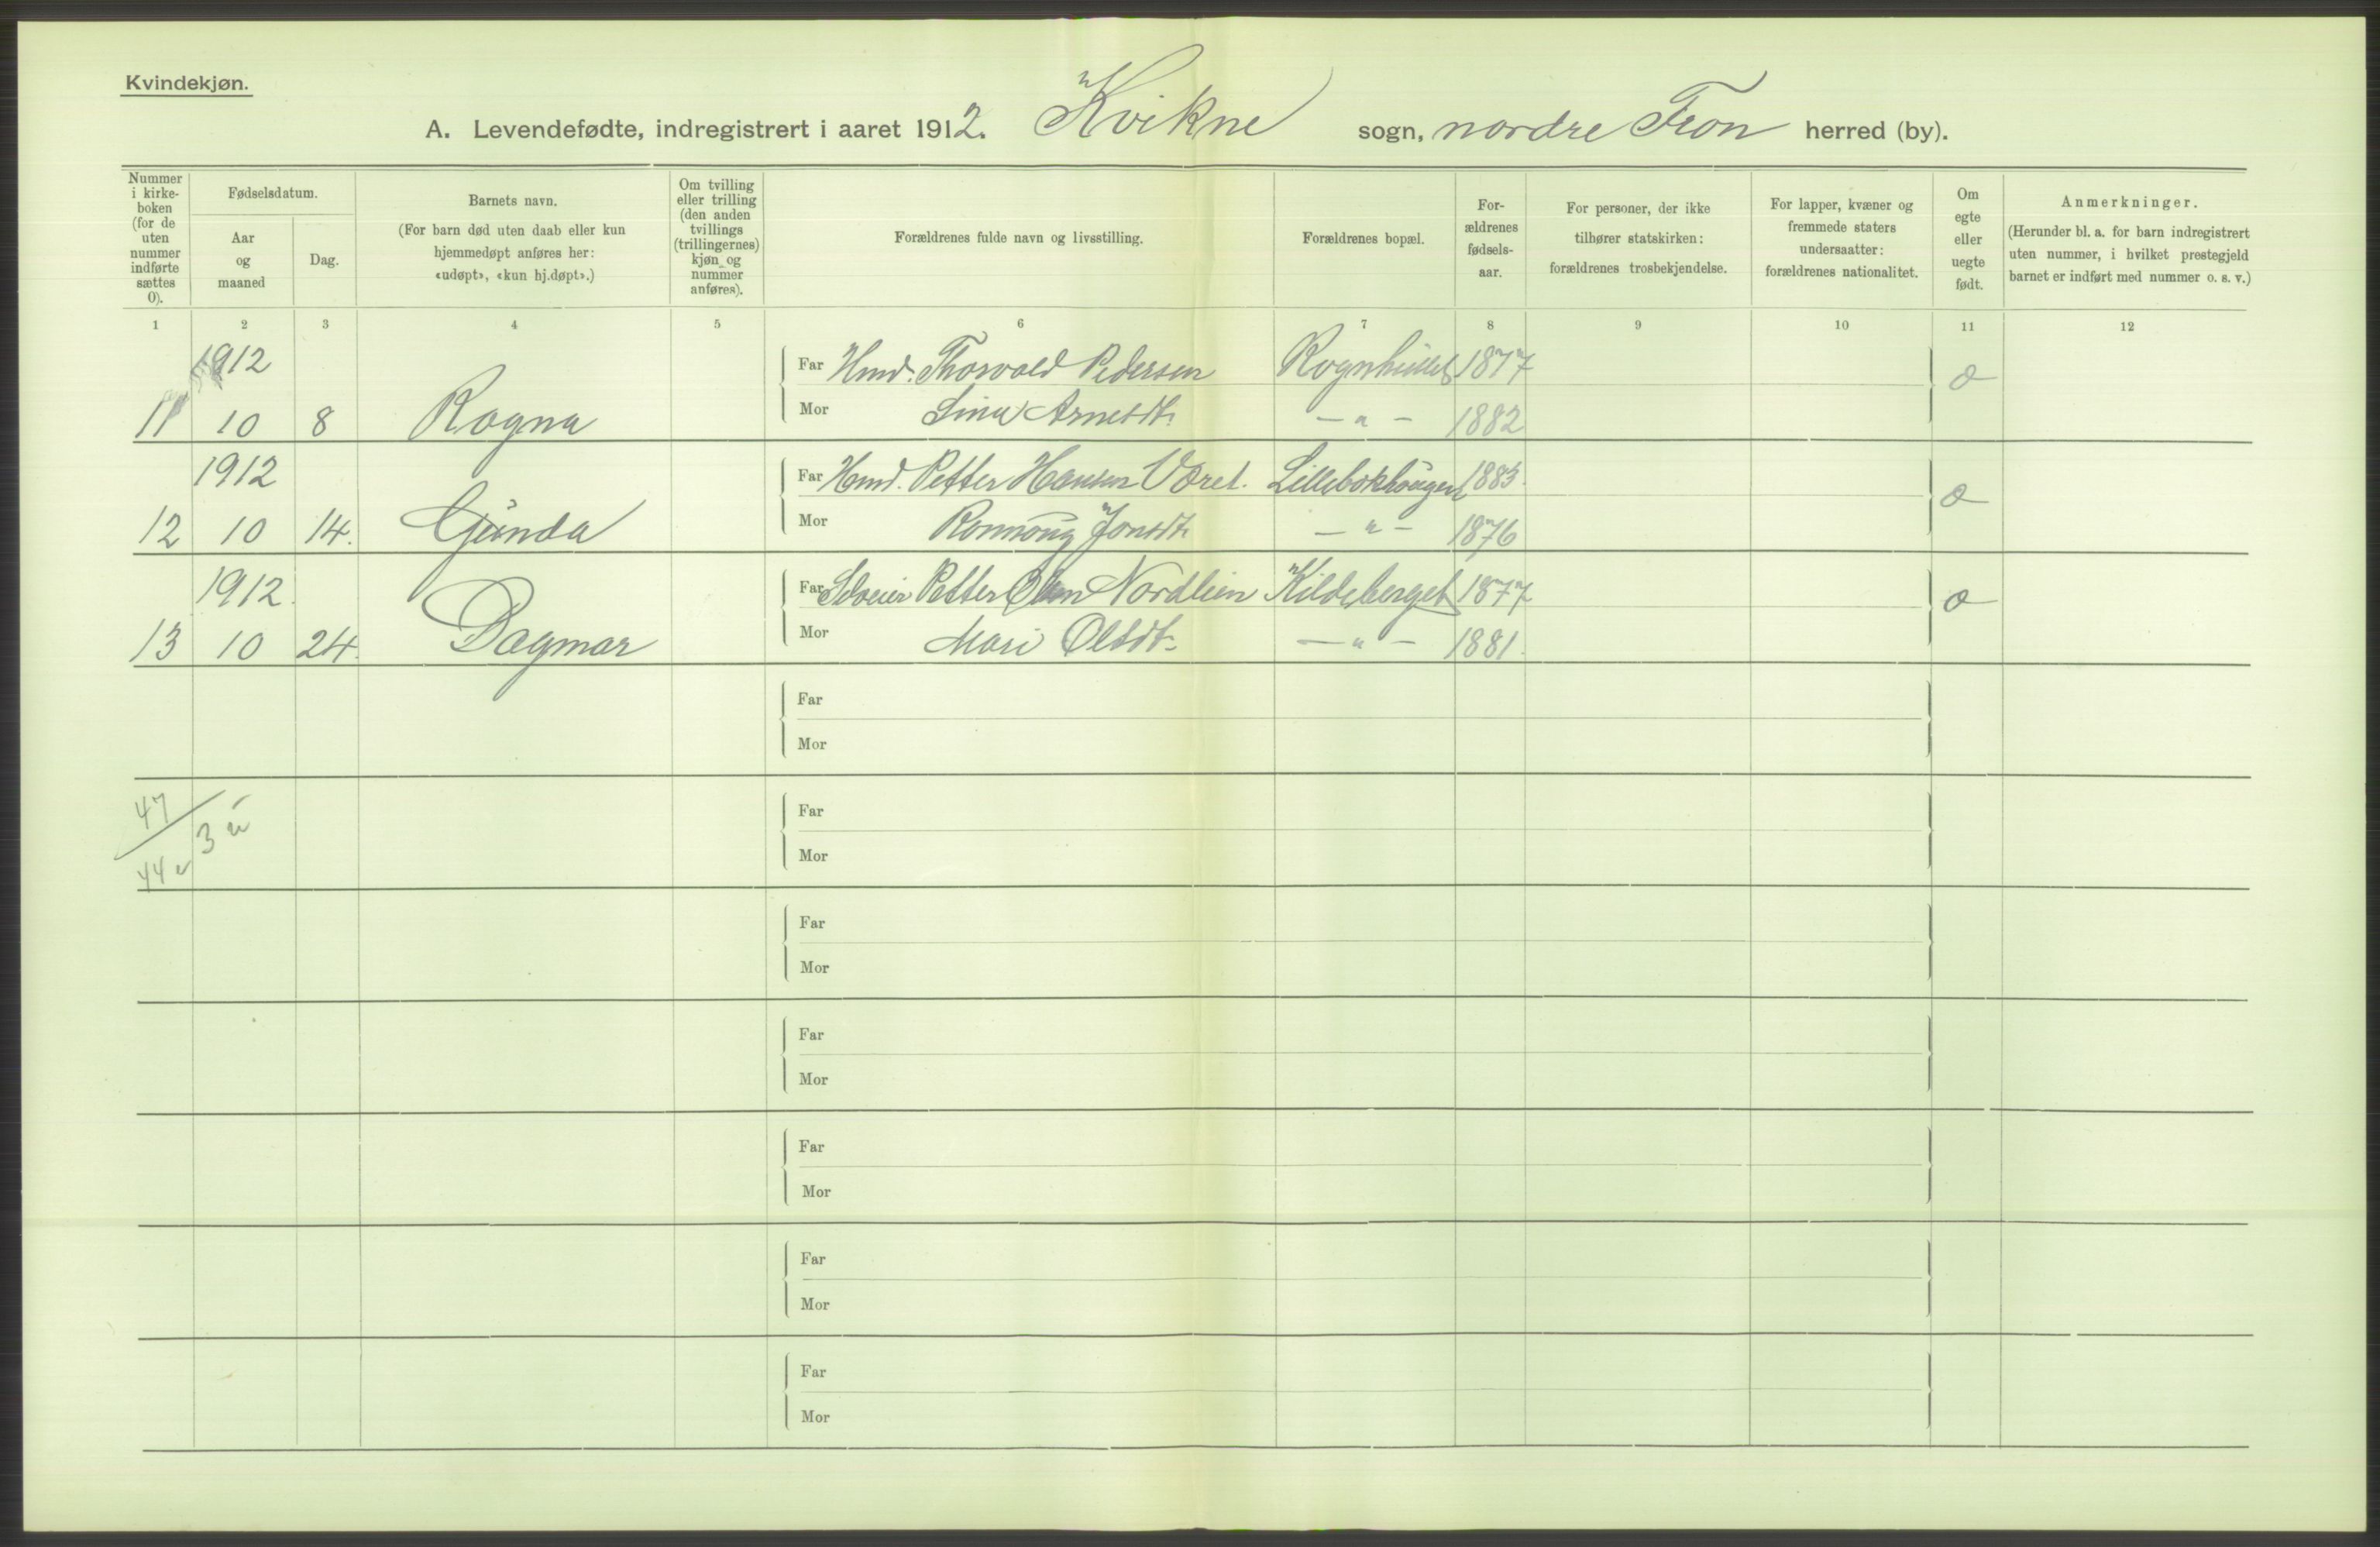 Kvindekjøn.
A. Levendefødte, indregistrert i aaret 1912. Kvikne sogn, nordre Fron herred (by).
Nummer i kirke-boken (for de uten nummer indførte sættes 0).
Fødselsdatum.
Aar og maaned
Dag.
Barnets navn.
(For barn død uten daab eller kun hjemmedøpt anføres her: «udøpt», «kun hj.døpt».)
Om tvilling eller trilling (den anden tvillings (trillingernes) kjøn og nummer anføres).
Forældrenes fulde navn og livsstilling.
Forældrenes bopæl.
For-ældrenes fødsels-aar.
For personer, der ikke tilhører statskirken: forældrenes trosbekjendelse.
For lapper, kvæner og fremmede staters undersaatter: forældrenes nationalitet.
Om egte eller uegte født.
Anmerkninger.
(Herunder bl. a. for barn indregistrert uten nummer, i hvilket prestegjeld barnet er indført med nummer o. s. v.)
1 2 3 4 5 6 7 8 9 10 11 12
1912 Far Hmd. Thorvald Pedersen 1877 æ
11 10 8 Ragna Mor Lina Arnesdt. — " — 1882
1912 Far Hmd. Petter Hansen 1883
12 10 14. Gunda Mor Jonsdt. — " — 1876 æ
1912. Far Petter Olsen Nordlien Kildeberget 1877
13 10 24. Dagmar Mor Mari Olsdt. — " — 1881. æ
Far
Mor
47 Far
3 u
44 Mor
Far
Mor
Far
Mor
Far
Mor
Far
Mor
Far
Mor